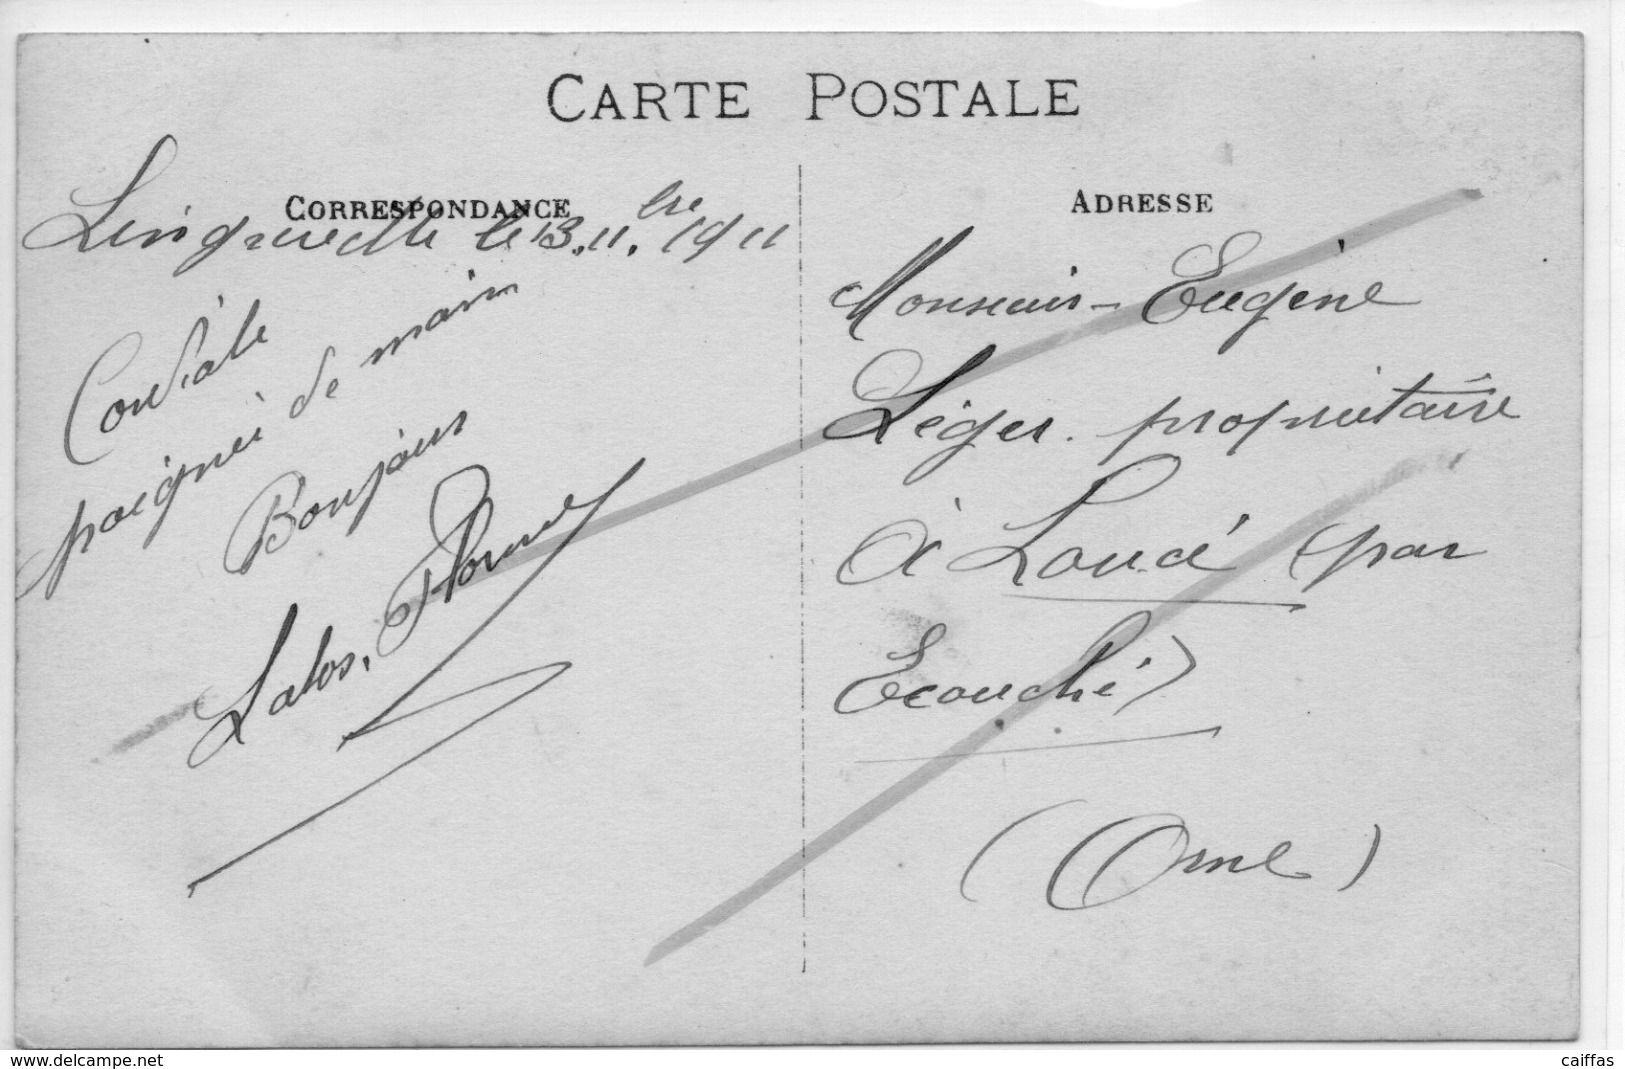 CARTE POSTALE
CORRESPONDANCE
le 13. 11.bre 1911
Cordiale
poignée de main
Bonjour
ADRESSE
Monsieur Eugène
Léger. propriétaire
à Loucé (par
Ecouché)
(Orne)
www.delcampe.net
caiffas